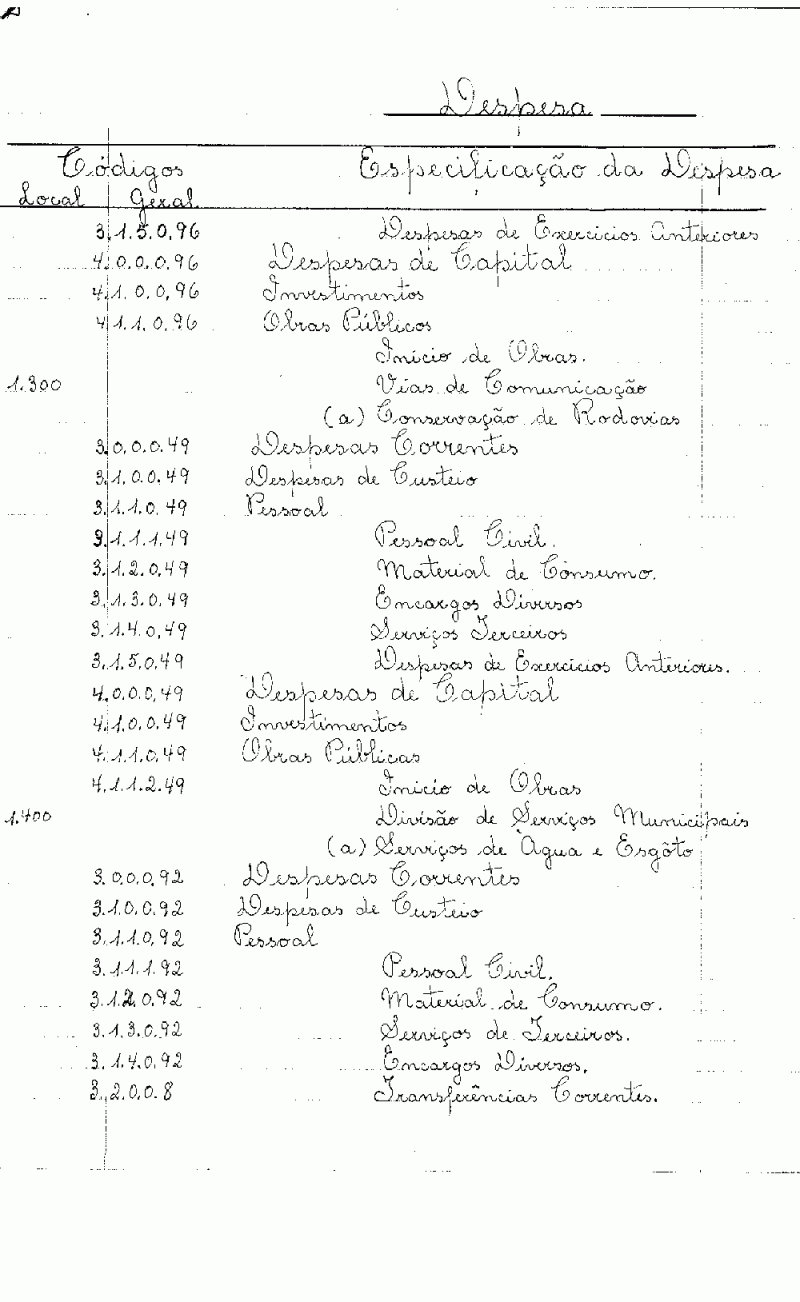 Despesa
Códigos Especificação da Despesa
Local Geral
3.1.5.0.96 Despesas de Exercícios Anteriores
4.0.0.0.96 Despesas de Capital
4.1.0.0.96 Investimentos
4.1.1.0.96 Obras Públicos
Início de Obras.
1.300 Vias de Comunicação
(a) Conservação de Rodovias
3.0.0.0.49 Despesas Correntes
3.1.0.0.49 Despesas de Custeio
3.1.1.0.49 Pessoal
3.1.1.1.49 Pessoal Civil.
3.1.2.0.49 Material de Consumo.
3.1.3.0.49 Encargos Diversos
3.1.4.0.49 Serviços Terceiros
3.1.5.0.49 Despesas de Exercícios Anteriores.
4.0.0.0.49 Despesas de Capital
4.1.0.0.49 Investimentos
4.1.1.0.49 Obras Públicas
4.1.1.2.49 Início de Obras
1.400 Divisão de Serviços Municipais
(a) Serviços de Água e Esgôto
3.0.0.0.92 Despesas Correntes
3.1.0.0.92 Despesas de Custeio
3.1.1.0.92 Pessoal
3.1.1.1.92 Pessoal Civil.
3.1.2.0.92 Material de Consumo.
3.1.3.0.92 Serviços de Terceiros.
3.1.4.0.92 Encargos Diversos.
3.2.0.0.8 Transferências Correntes.